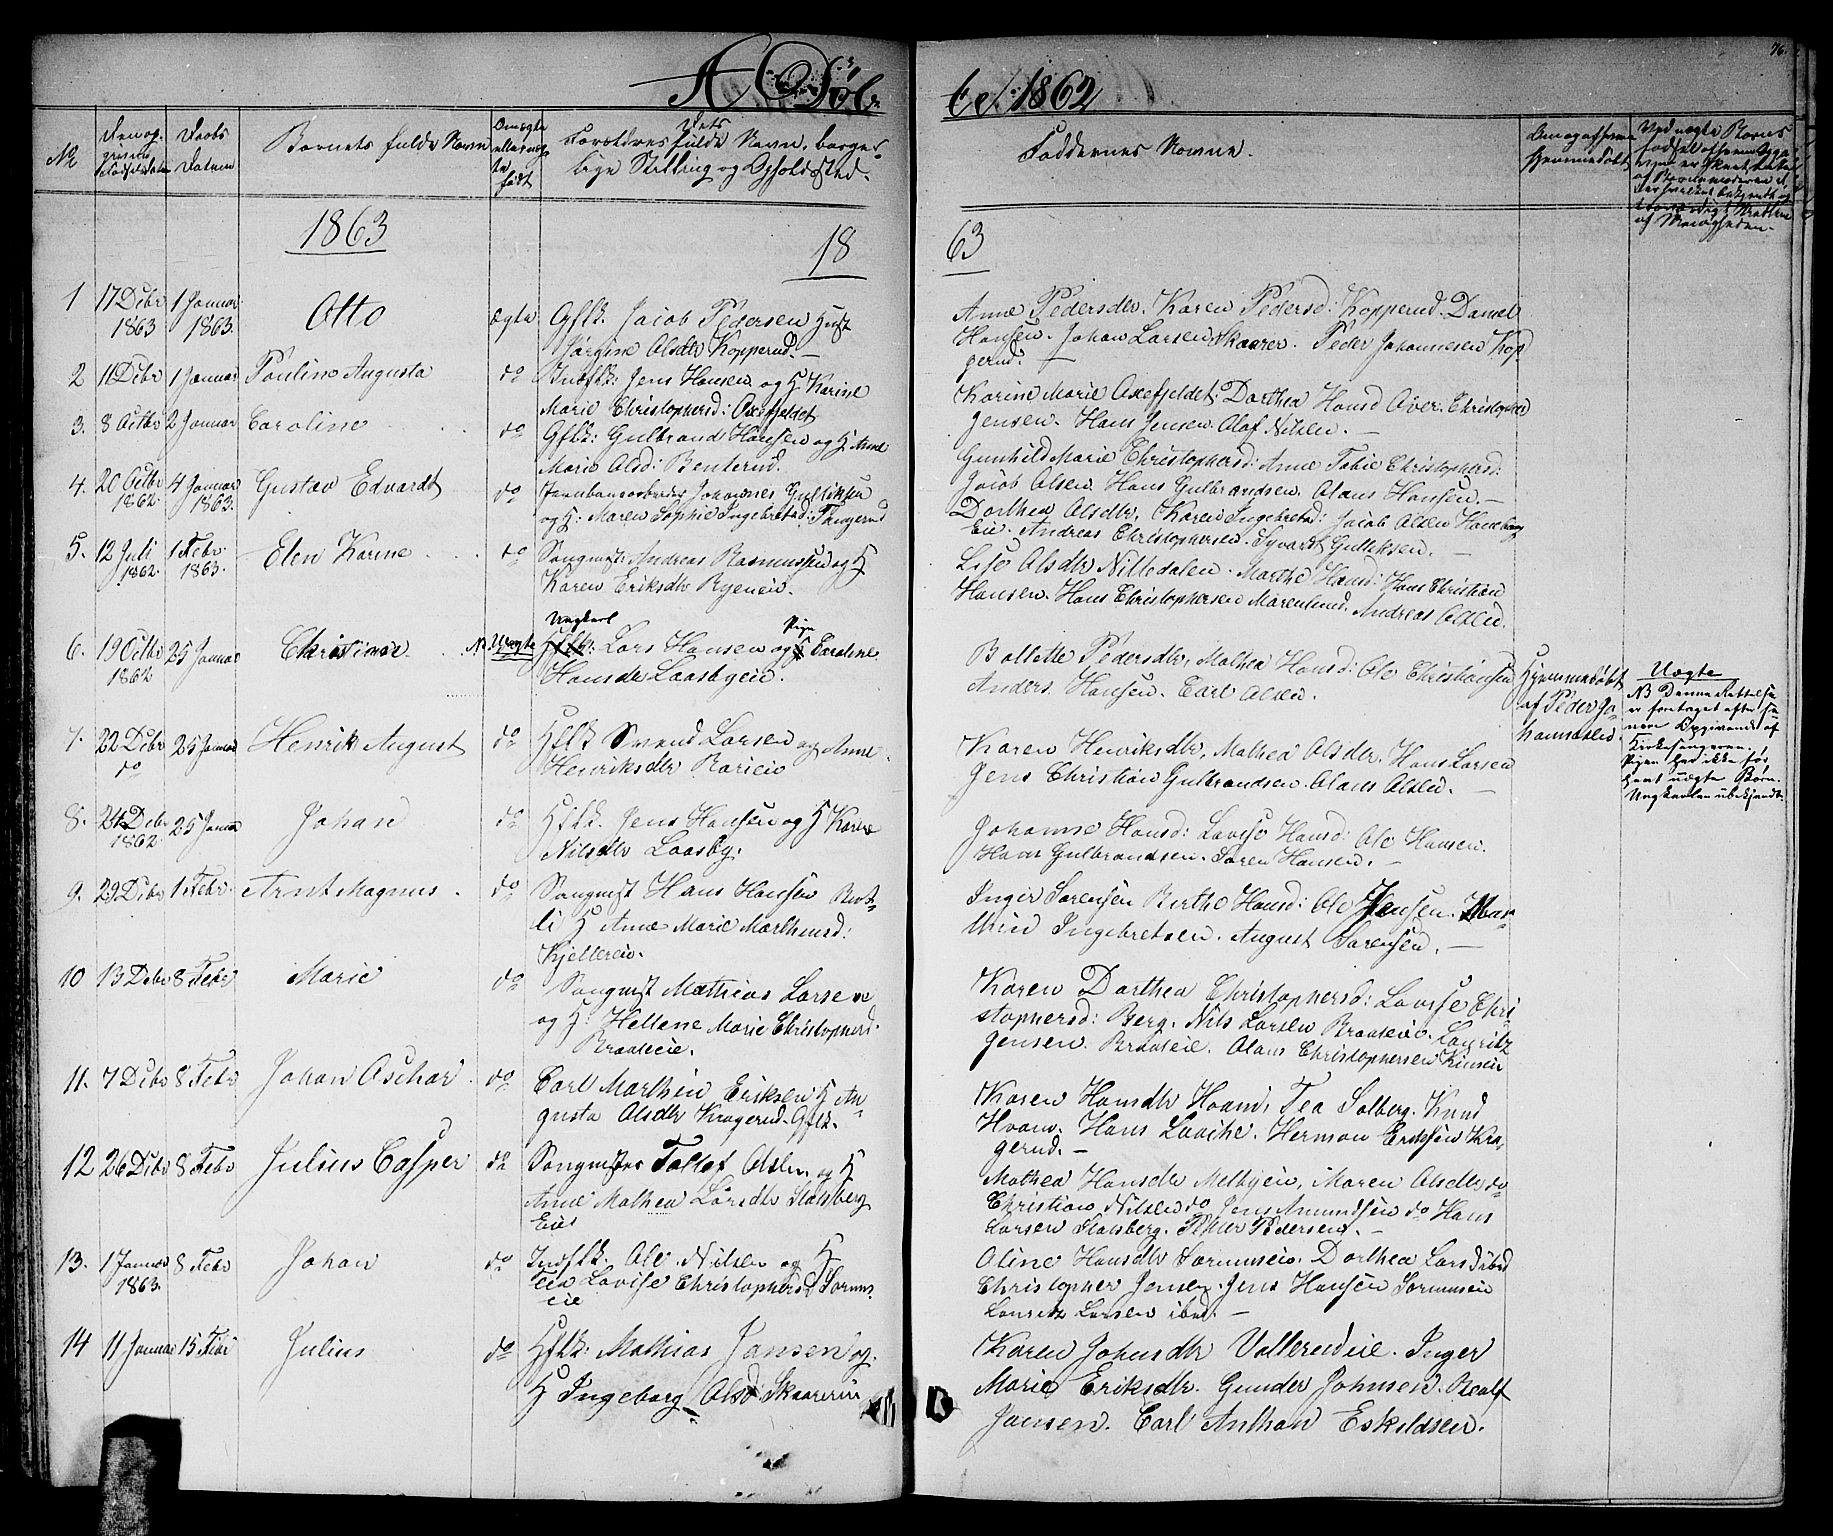 76.
A Døbte 1862
No
Barnets fulde Navn
Faddernes Navne.
1863
18 63
1 17 Decbr 1863 1 Januar 1863. Otto ægte Gflk. Jacob Pedersen Hust
Jørgine Olsdtr Kopperud.—
Anne Pedersdtr. Karen Pedersd: Kopperud. Daniel
Hansen. Johan Larsen Skaarer. Peder Johannesen Kop
gerud.
2 11 Decbr 1 Januar Pauline Augusta do Indflk: Jens Hansen og H. Karine
Marie Christophersd: Oxefjeldet
Karine Marie Oxefjeldet. Dorthea Hansd Aver. Christopher
Jensen. Hans Jensen. Olaf Nilsen.—
3. 8 Octbr 2 Januar Caroline do Gflk: Gulbrand Hansen og H Anne
Marie Olsd: Benterud.
Gunhild Marie Christophersd: Anne Tobie Christophersd:
Jacob Olsen. Hans Gulbrandsen. Olaus Hansen.—
4. 20 Octbr 1862 4 Januar 1863. Gustav Edvardt do Jernbanearbeider Johannes Gulliksen
og H: Maren Sophie Ingebretsd: Haugerud
Dorthea Olsdtr. Karen Ingebretsd: Jacob Olsen Haneborg
Eie. Andreas Christophersen. Syvardt Gulliksen.—
5. 12 Juli 1862. 1 Febr. 1863. Elen Karine do Saugmst: Andreas Rasmussen og H
Karen Eriksdtr Ryeneie.
Lise Olsdtr Nittedalen. Marthe Hansd: Hans Christian
Hansen. Hans Christophersen Marenlund. Andreas Olsen.
6. 19 Octbr 1862 25 Januar Christine NB Uægte Ungkarl Hflk: Lars Hansen og Pige H Caroline
Hansdtr Laasbyeie.
Bollette Pedersdtr, Mathea Hansd: Ole Christiansen
Anders Hansen. Carl Olsen.
Hjemmedøbt
af Peder Jo-
hannesen.
Uægte
NB Denne Rettelse
er foretaget efter se-
nere Opgivende af
Kirkesangeren,
Pigen har ikke før
havt uægte Børn.
Ungkarlen ubekjendt.
7. 22 Decbr do 25 Januar Henrik August do Hflk Svend Larsen og Anne
Henriksdtr Rarieie
Karen Henriksdtr, Mathea Olsdtr. Hans Larsen
Jens Christian Gulbrandsen. Olaus Olsen.—
8. 24 Decbr 1862. 25 Januar Johan do Hflk. Jens Hansen og H Karen
Nilsdtr Laasby.
Johanne Hansd: Lovise Hansd: Ole Hansen.
Hans Gulbrandsen. Søren Hansen.—
9. 29 Decbr 1 Febr. Arnt Magnus do Saugmst Hans Hansen Rust-
li H Anne Marie Marthinsd:
Kjellereie.
Inger Sørensen Berthe Hansd: Ole Jensen. Mar-
thin Ingebretsen. August Sørensen.—
10 13 Decbr 8 Febr Marie do Saugmst Mathias Larsen
og H: Hellene Marie Christophersd.
Braateeie.
Karen Dorthea Christophersd: Lovise Chri-
stophersd: Berg. Nils Larsen Braateeie. Lauritz
Jensen. Braateie. Olaus Christophersen
11. 7 Decbr 8 Febr Johan Oschar do Carl Marthin Eriksen H Au-
gusta Olsdtr Kragerud. Gflk.
Karen Hansdtr Hvam, Tea Solberg. Knud
Hvam. Hans Laache. Herman Eriksen Kra-
gerud.—
12 26 Decbr 8 Febr Julius Casper do Saugmester Tollef Olsen og H
Anne Mathea Larsdtr Stalsberg
Eie
Mathea Hansdtr Melbyeie, Maren Olsdtr do
Christian Nilsen do Jens Amundsen do Hans
Larsen Stalsberg. Peder Pedersen.—
13. 1 Januar 1863. 8 Febr Johan do Indflk. Ole Nilsen og H
Tea Lovise Christophersd Sørums-
eie
Oline Hansdtr Sørumseie. Dorthea Larsd ibid
Christopher Jensen. Jens Hansen Sørumseie
Lauritz Larsen ibid.—
14 11 Januar 15 Febr Julius do Hflk: Mathias Jansen og
H Ingeborg Olsd Skaarereie
Karen Johnsdtr Vallerudeie. Inger
Marie Eriksdtr. Gunder Johnsen. Roalf
Jansen. Carl Anthon Eskildsen.